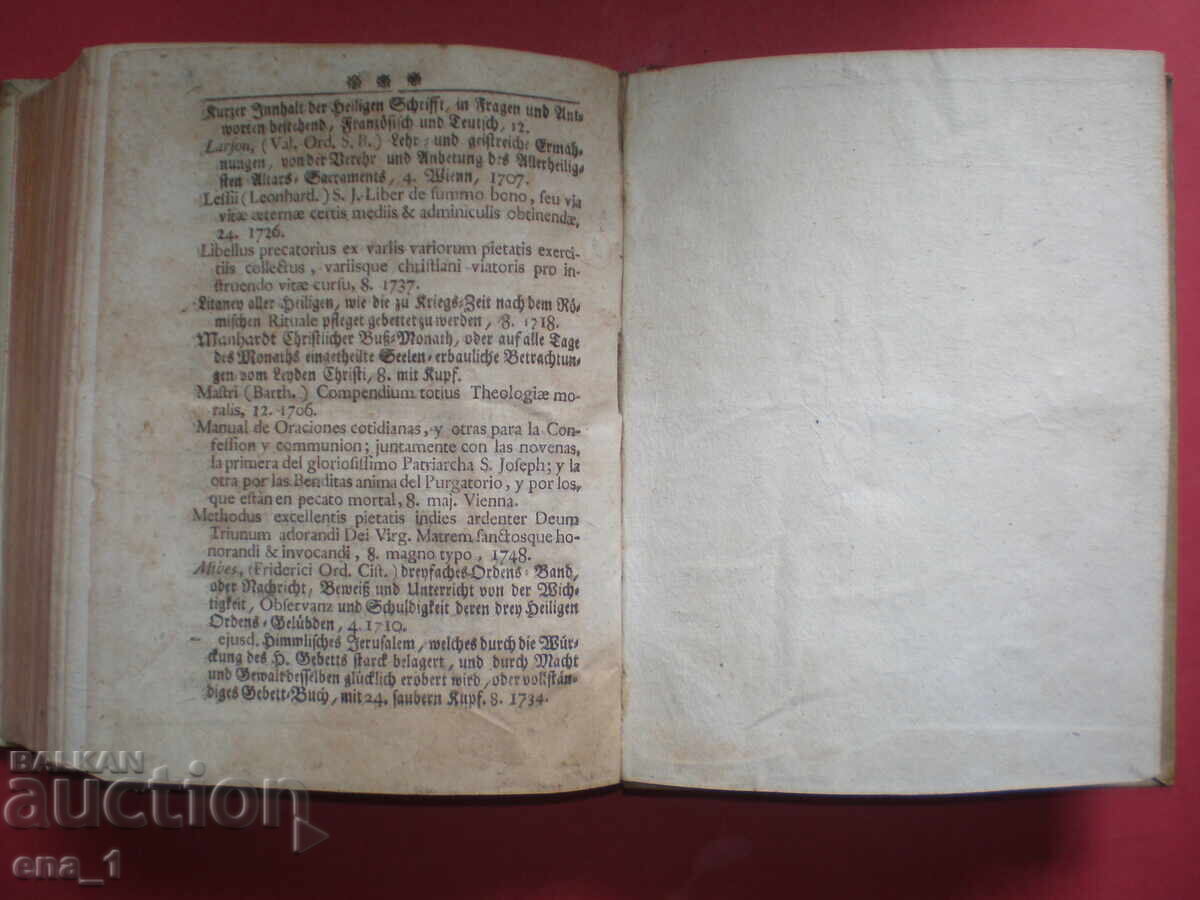 Kurzer Jnnhalt der Heiligen Schrifft, in Fragen und Ant-
worten bestehend, Französisch und Teutsch, 12.
Larson, (Val. Ord. S. B.) Lehr- und geistreiche Ermah-
nungen, von der Verehr und Anbetung des Allerheilig-
sten Altars-Sacraments, 4. Wienn, 1707.
Leſſii (Leonhard.) S. J. Liber de ſummo bono, ſeu via
vitæ æternæ certis mediis & adminiculis obtinendæ,
24. 1726.
Libellus precatorius ex variis variorum pietatis exerci-
tiis collectus, variisque chriſtiani viatoris pro in-
ſtruendo vitæ curſu, 8. 1737.
Litaney aller Heiligen, wie die zu Kriegs-Zeit nach dem Rö-
mischen Rituale pfleget gebettet zu werden, 8. 1718.
Manhardt Christlicher Buß-Monath, oder auf alle Tage
des Monaths eingetheilte Seelen-erbauliche Betrachtun-
gen vom Leyden Christi, 8. mit Kupf.
Maſtri (Barth.) Compendium totius Theologiæ mo-
ralis, 12. 1706.
Manual de Oraciones cotidianas, y otras para la Con-
feſſion y communion; juntamente con las novenas,
la primera del glorioſiſſimo Patriarcha S. Joſeph; y la
otra por las Benditas anima del Purgatorio, y por los,
que eſtàn en pecato mortal, 8. maj. Vienna.
Methodus excellentis pietatis indies ardenter Deum
Triunum adorandi Dei Virg. Matrem ſanctosque ho-
norandi & invocandi, 8. magno typo, 1748.
Mibes, (Friderici Ord. Ciſt.) dreyfaches Ordens-Band,
oder Nachricht, Beweiß und Unterricht von der Wich-
tigkeit, Obſervanz und Schuldigkeit deren drey Heiligen
Ordens-Gelübden, 4. 1710.
– ejusd. Himmlisches Jerusalem, welches durch die Wür-
ckung des H. Gebetts starck belagert, und durch Macht
und Gewalt desselben glücklich erobert wird, oder vollstän-
diges Gebett-Buch, mit 24. saubern Kupf. 8. 1734.
BALKAN
auction
ena_1